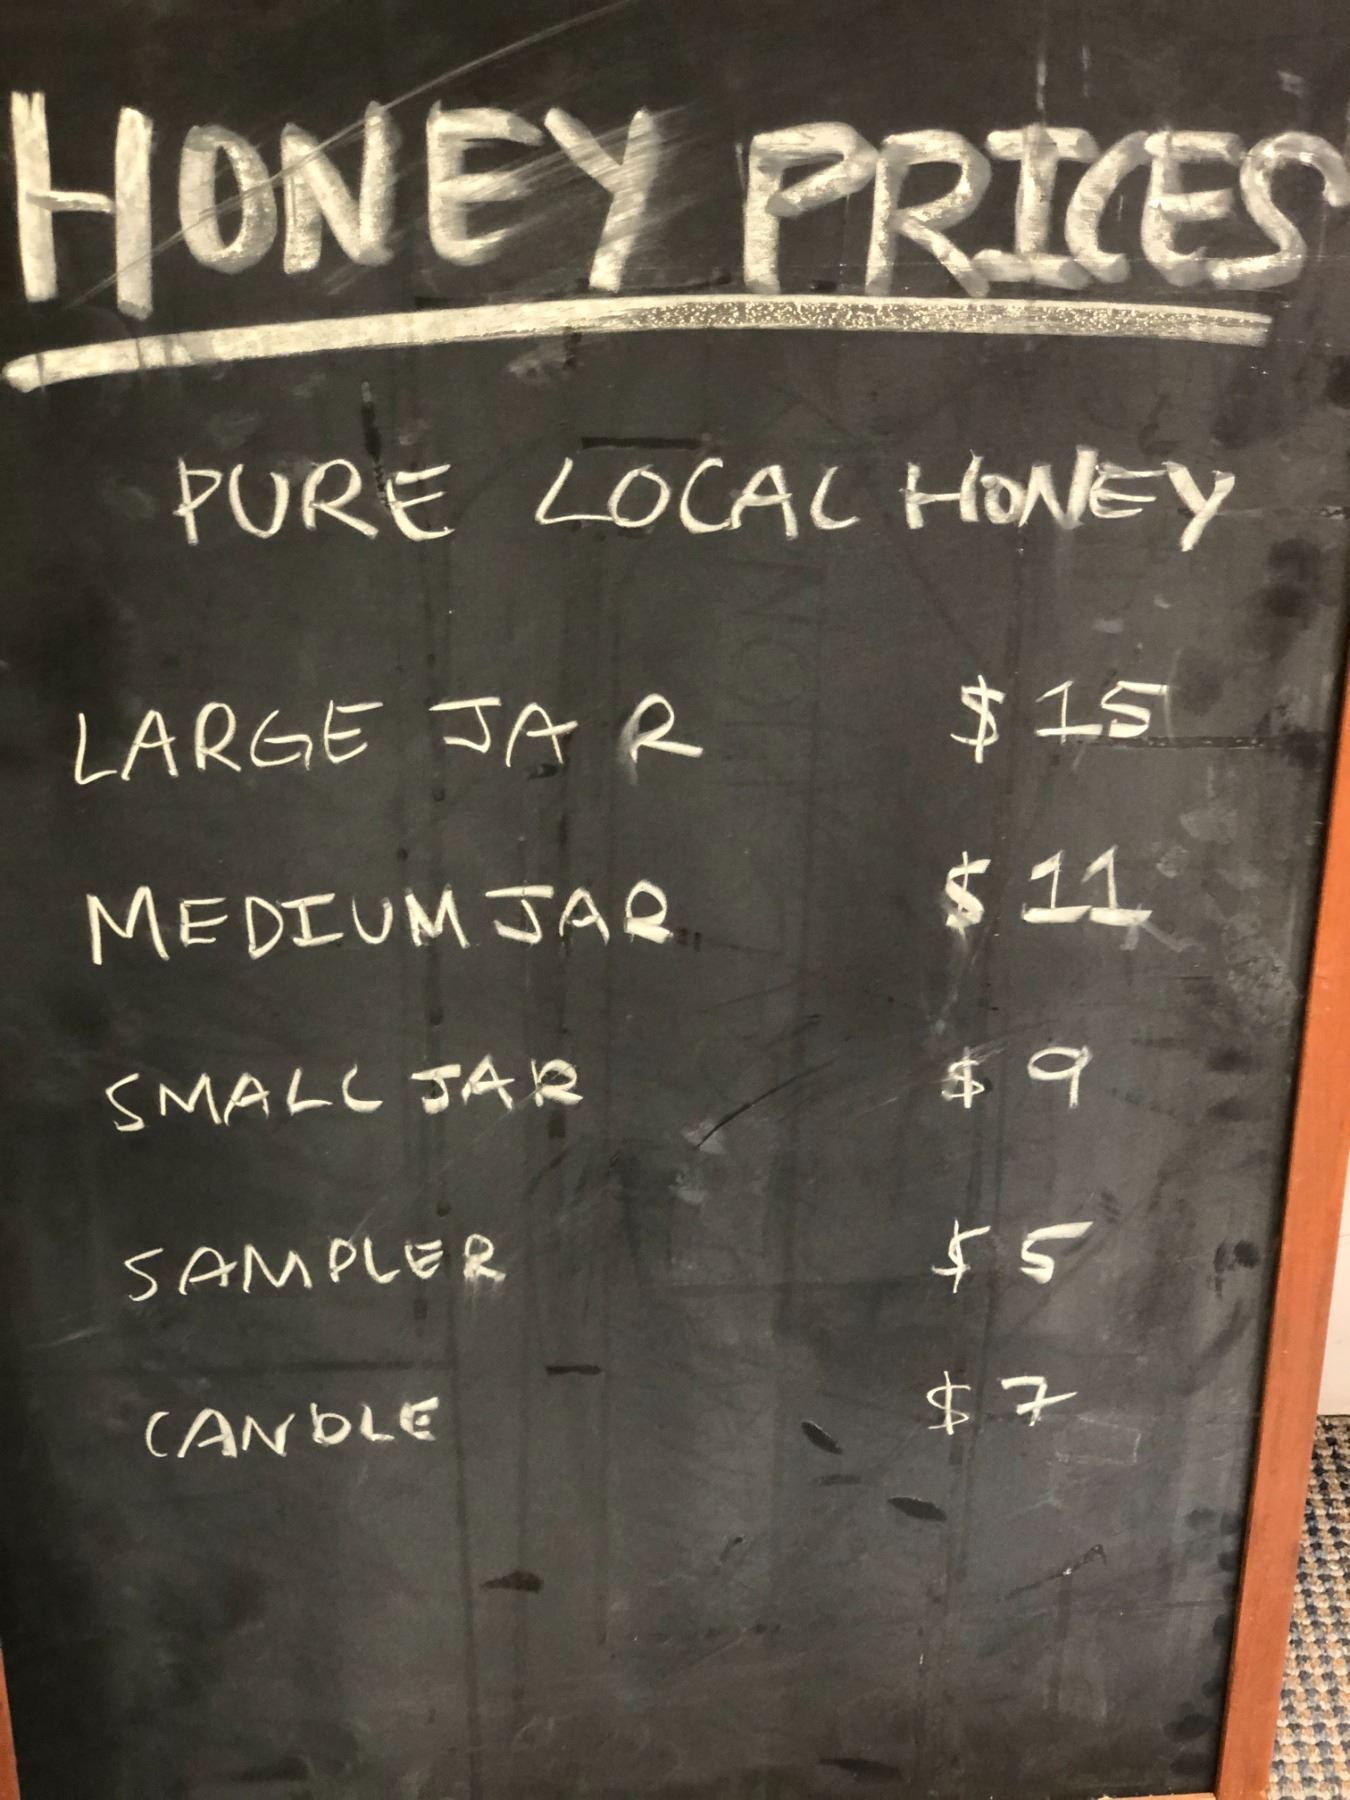 HONEY PRICES
PURE LOCAL HONEY
LARGE JAR $15
MEDIUM JAR $11
SMALL JAR $9
SAMPLER $5
CANDLE $7